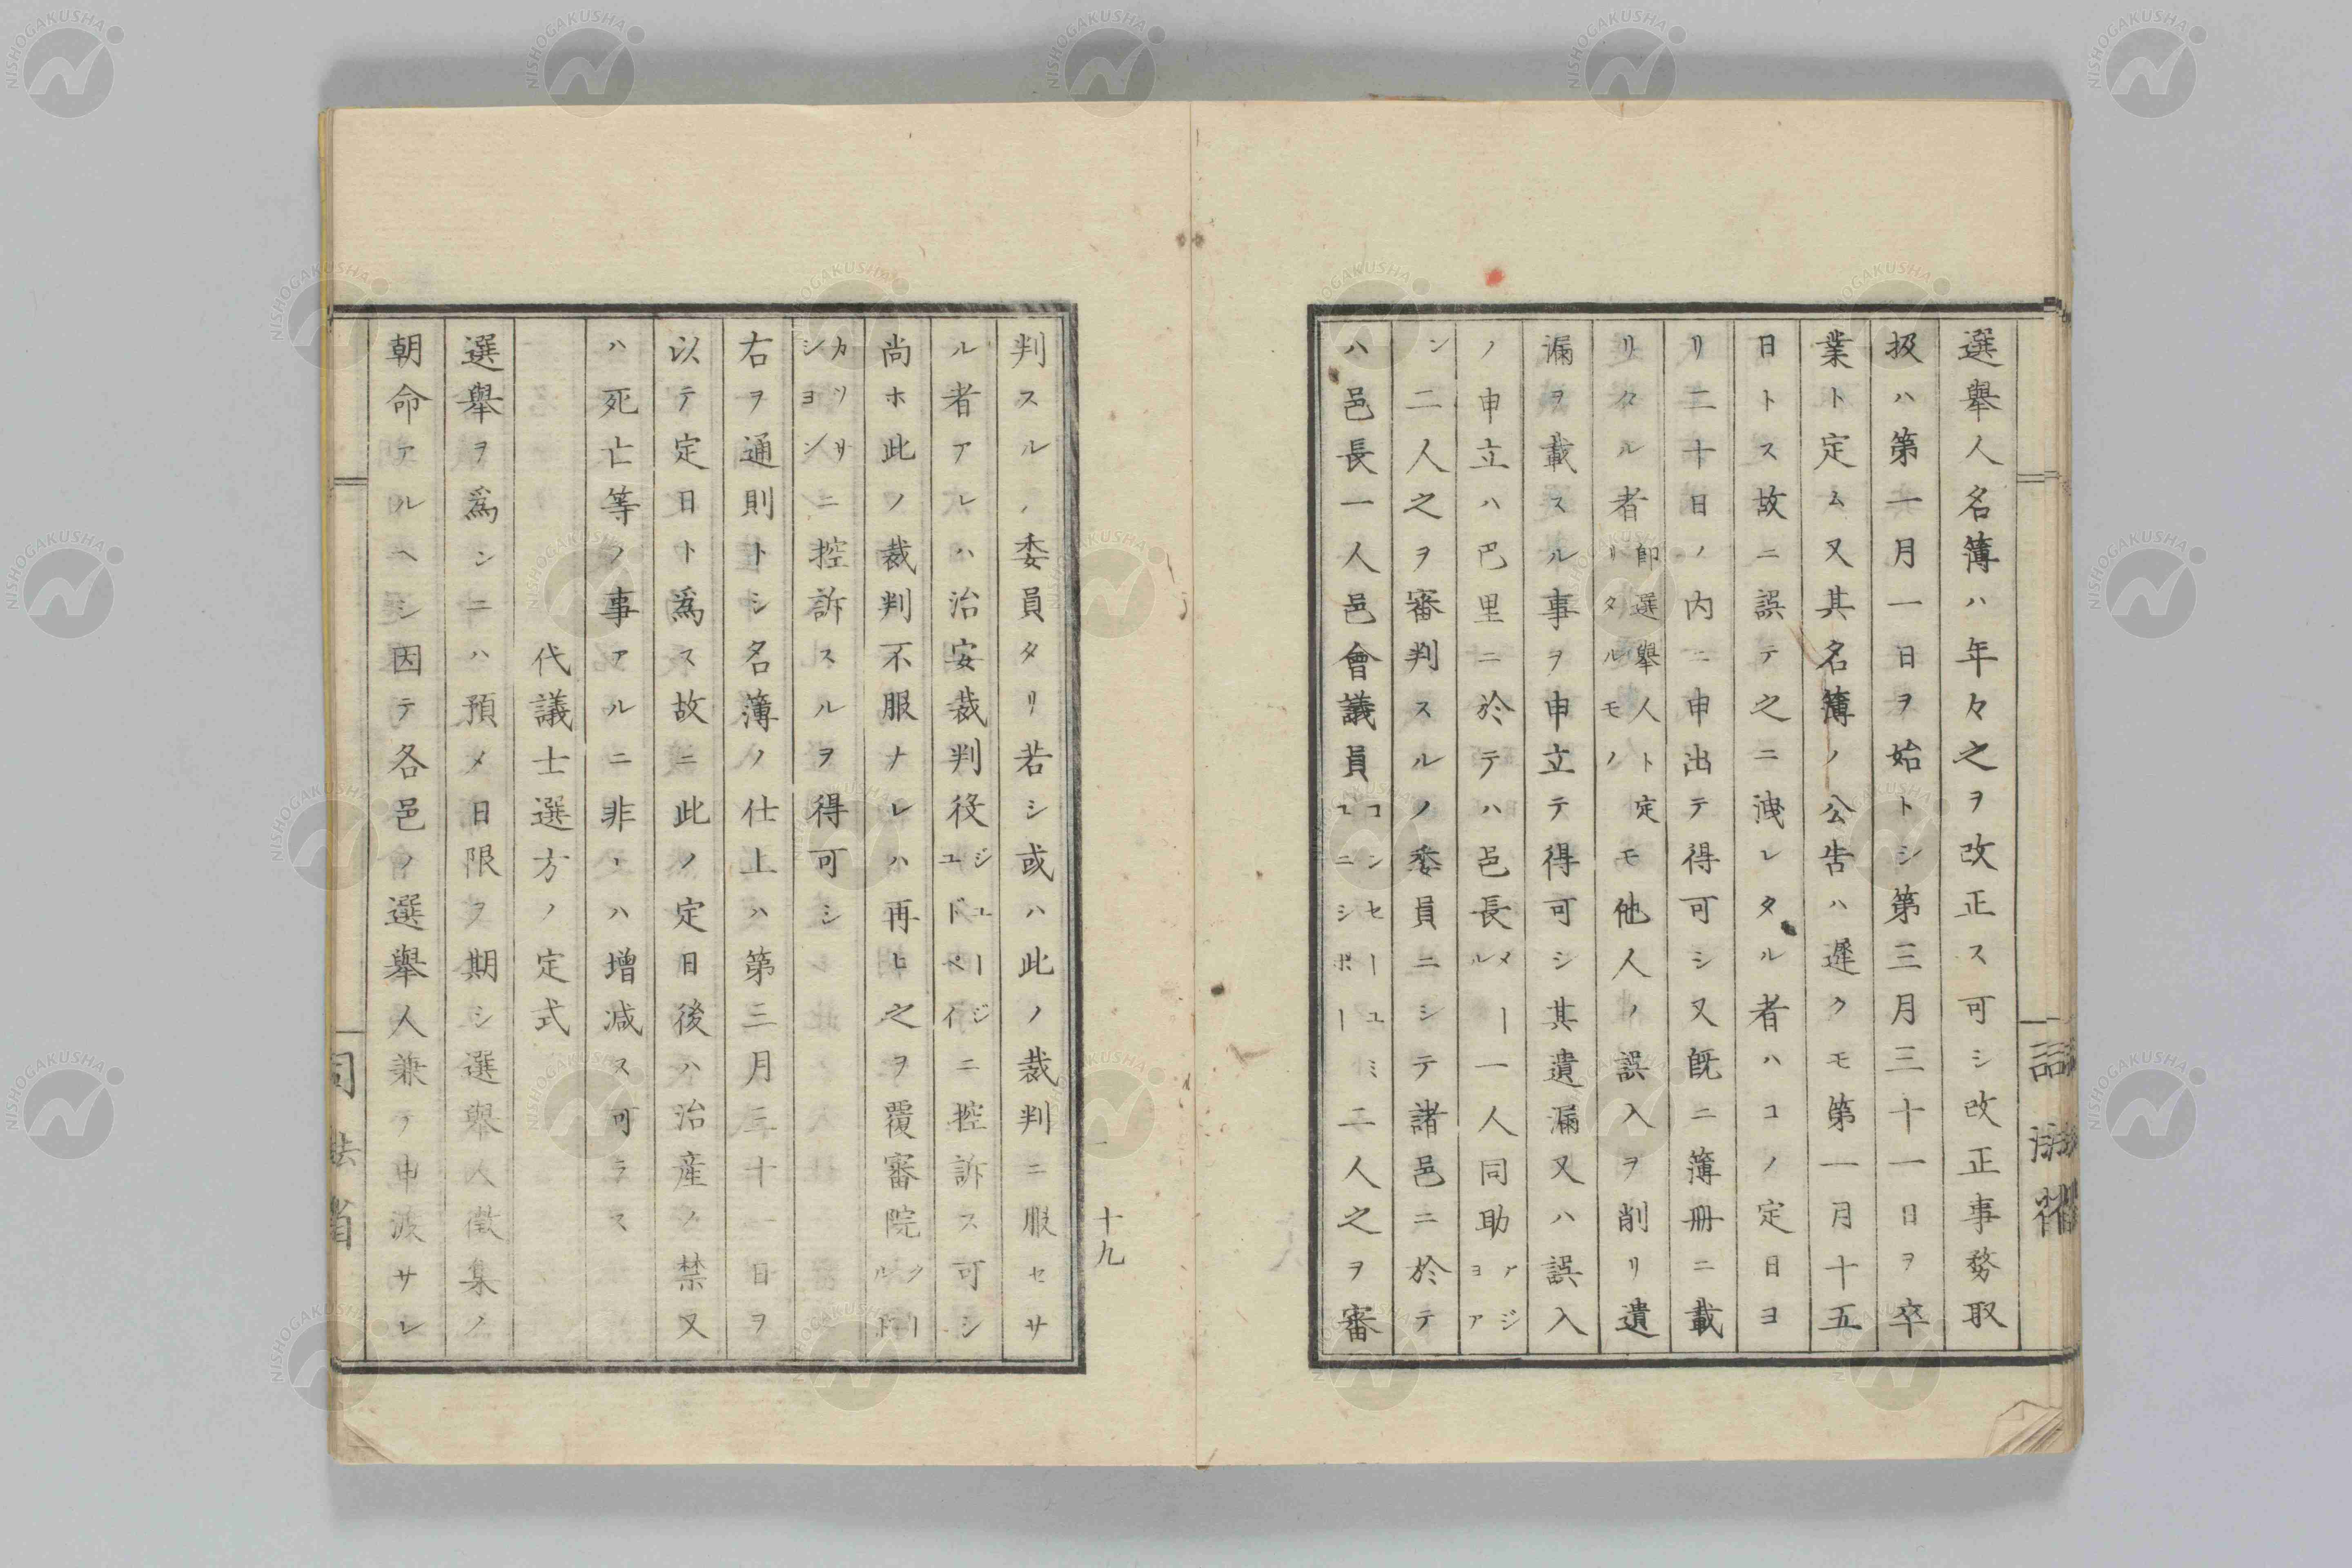 選舉人名簿ハ年々之ヲ改正ス可シ改正事務取
扱ハ第一月一日ヲ始トシ第三月三十一日ヲ卒
業ト定ム又其名簿ノ公告ハ遲クモ第一月十五
日トス故ニ誤テ之ニ洩レタル者ハコノ定日ヨ
リ二十日ノ内ニ申出テ得可シ又既ニ簿冊ニ載
リタル者即選舉人ト定リタルモノモ他人ノ誤入ヲ削リ遺
漏ヲ載スル事ヲ申立テ得可シ其遺漏又ハ誤入
ノ申立ハ巴里ニ於テハ邑長メール一人同助アジヨア
ン二人之ヲ審判スルノ委員ニシテ諸邑ニ於テ
ハ邑長一人邑會議員コンセーユミユニシポー二人之ヲ審
十九
判スルノ委員タリ若シ或ハ此ノ裁判ニ服セサ
ル者アレハ治安裁判役ジユージユドペイジニ控訴ス可シ
尚ホ此ノ裁判不服ナレハ再ヒ之ヲ覆審院クールド
カツサシヨンニ控訴スルヲ得可シ
右ヲ通則トシ名簿ノ仕上ハ第三月三十一日ヲ
以テ定日ト爲ス故ニ此ノ定日後ハ治産ノ禁又
ハ死亡等ノ事アルニ非レハ增減ス可ラス
代議士選方ノ定式
選舉ヲ爲シニハ預メ日限ヲ期シ選舉人徵集ノ
朝命アルヘシ因テ各邑ノ選舉人兼テ申渡サレ
司法省
NISHOGAKUSHA